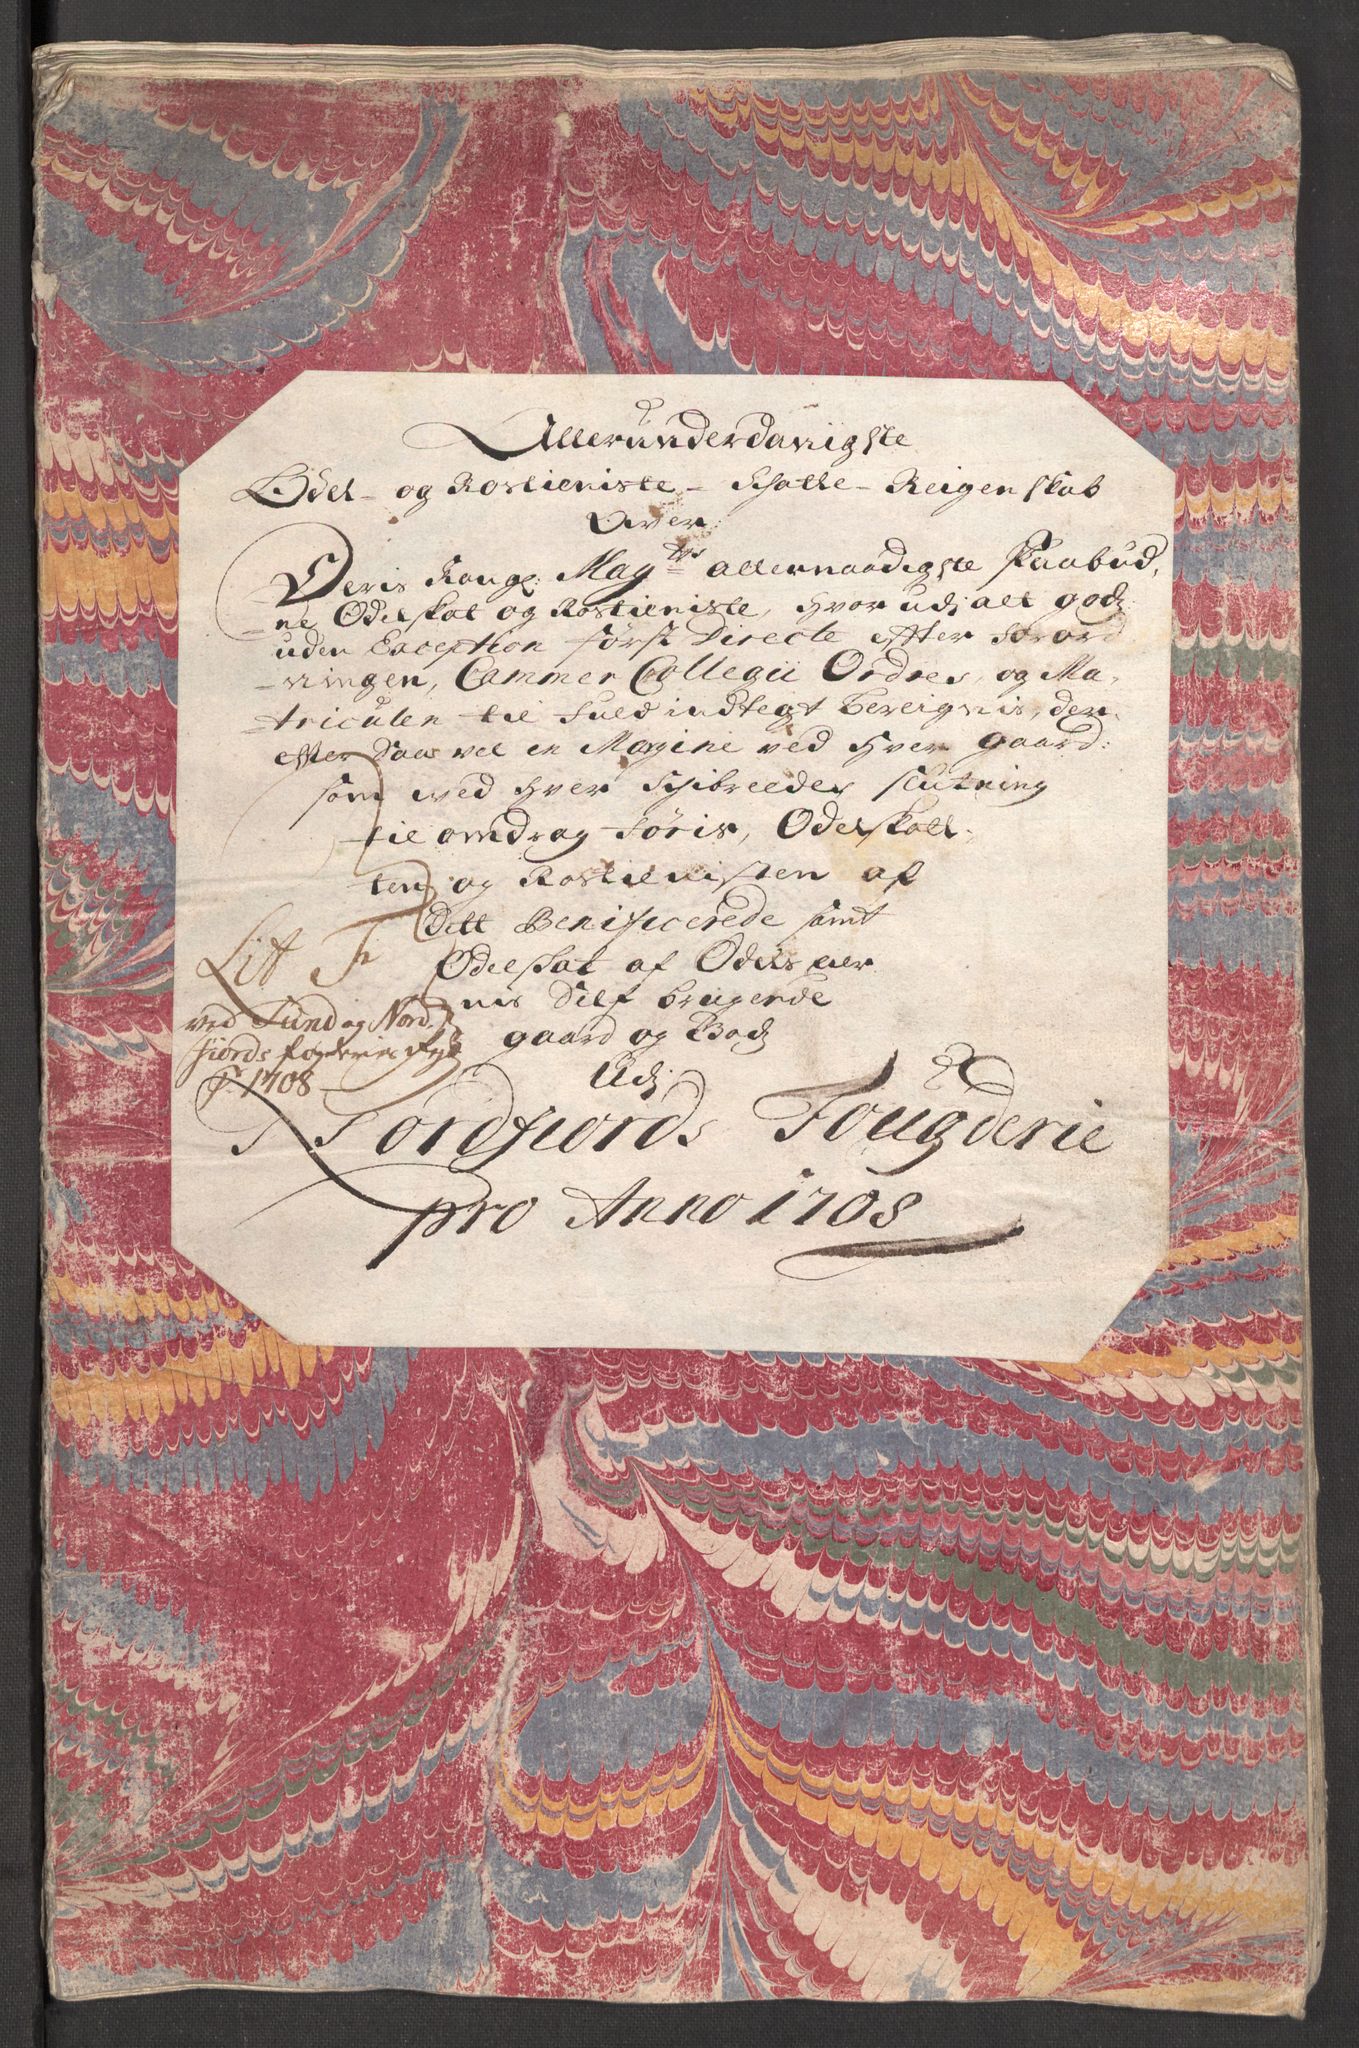 Allerunderdanigste
Odel- og Rostieniste- Schatte- Reigenskab
Over
Deris Kongl: Mayts allernaadigste Paabud,
ne Odelskat og Rostieniste, hvor udj alt godz
uden Exception først Directe efter forord
ningen, Cammer Collegii Ordres, og Ma,
triculen til fuld indtegt bereignis, der
efter saa vel in Margine ved hver gaard
som ved hver Schibreedes slutning
til omdrag føris, Odelskatt
ten og Rostienisten af
dett Benificerede samt
Odelskat af Odels eier
nis self brugende
gaard og Bodz
Udj
Nordfiords Fougderie
pro Anno 1708
Litt F
ved Sund og Nord
fiords fogderies
Pr 1708